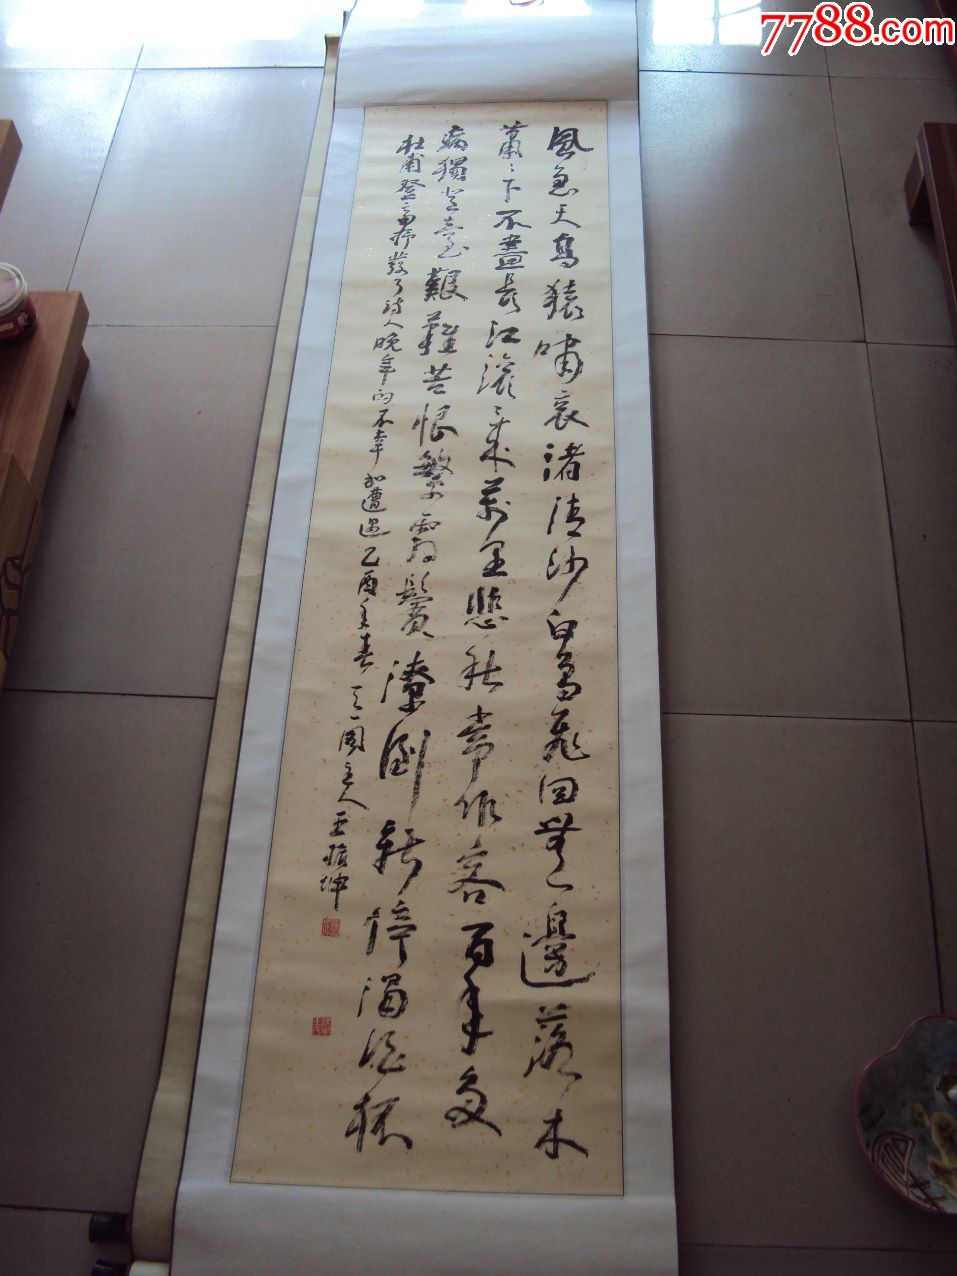 7788.com
風急天高猿嘯哀渚清沙白鳥飛回無邊落木
蕭〻下不盡長江滾〻來萬里悲秋常作客百年多
病獨登臺艱難苦恨繁霜鬢潦倒新停濁酒杯
杜甫登高抒發了詩人晚年的不幸和遭遇乙酉年春 一閣主人王